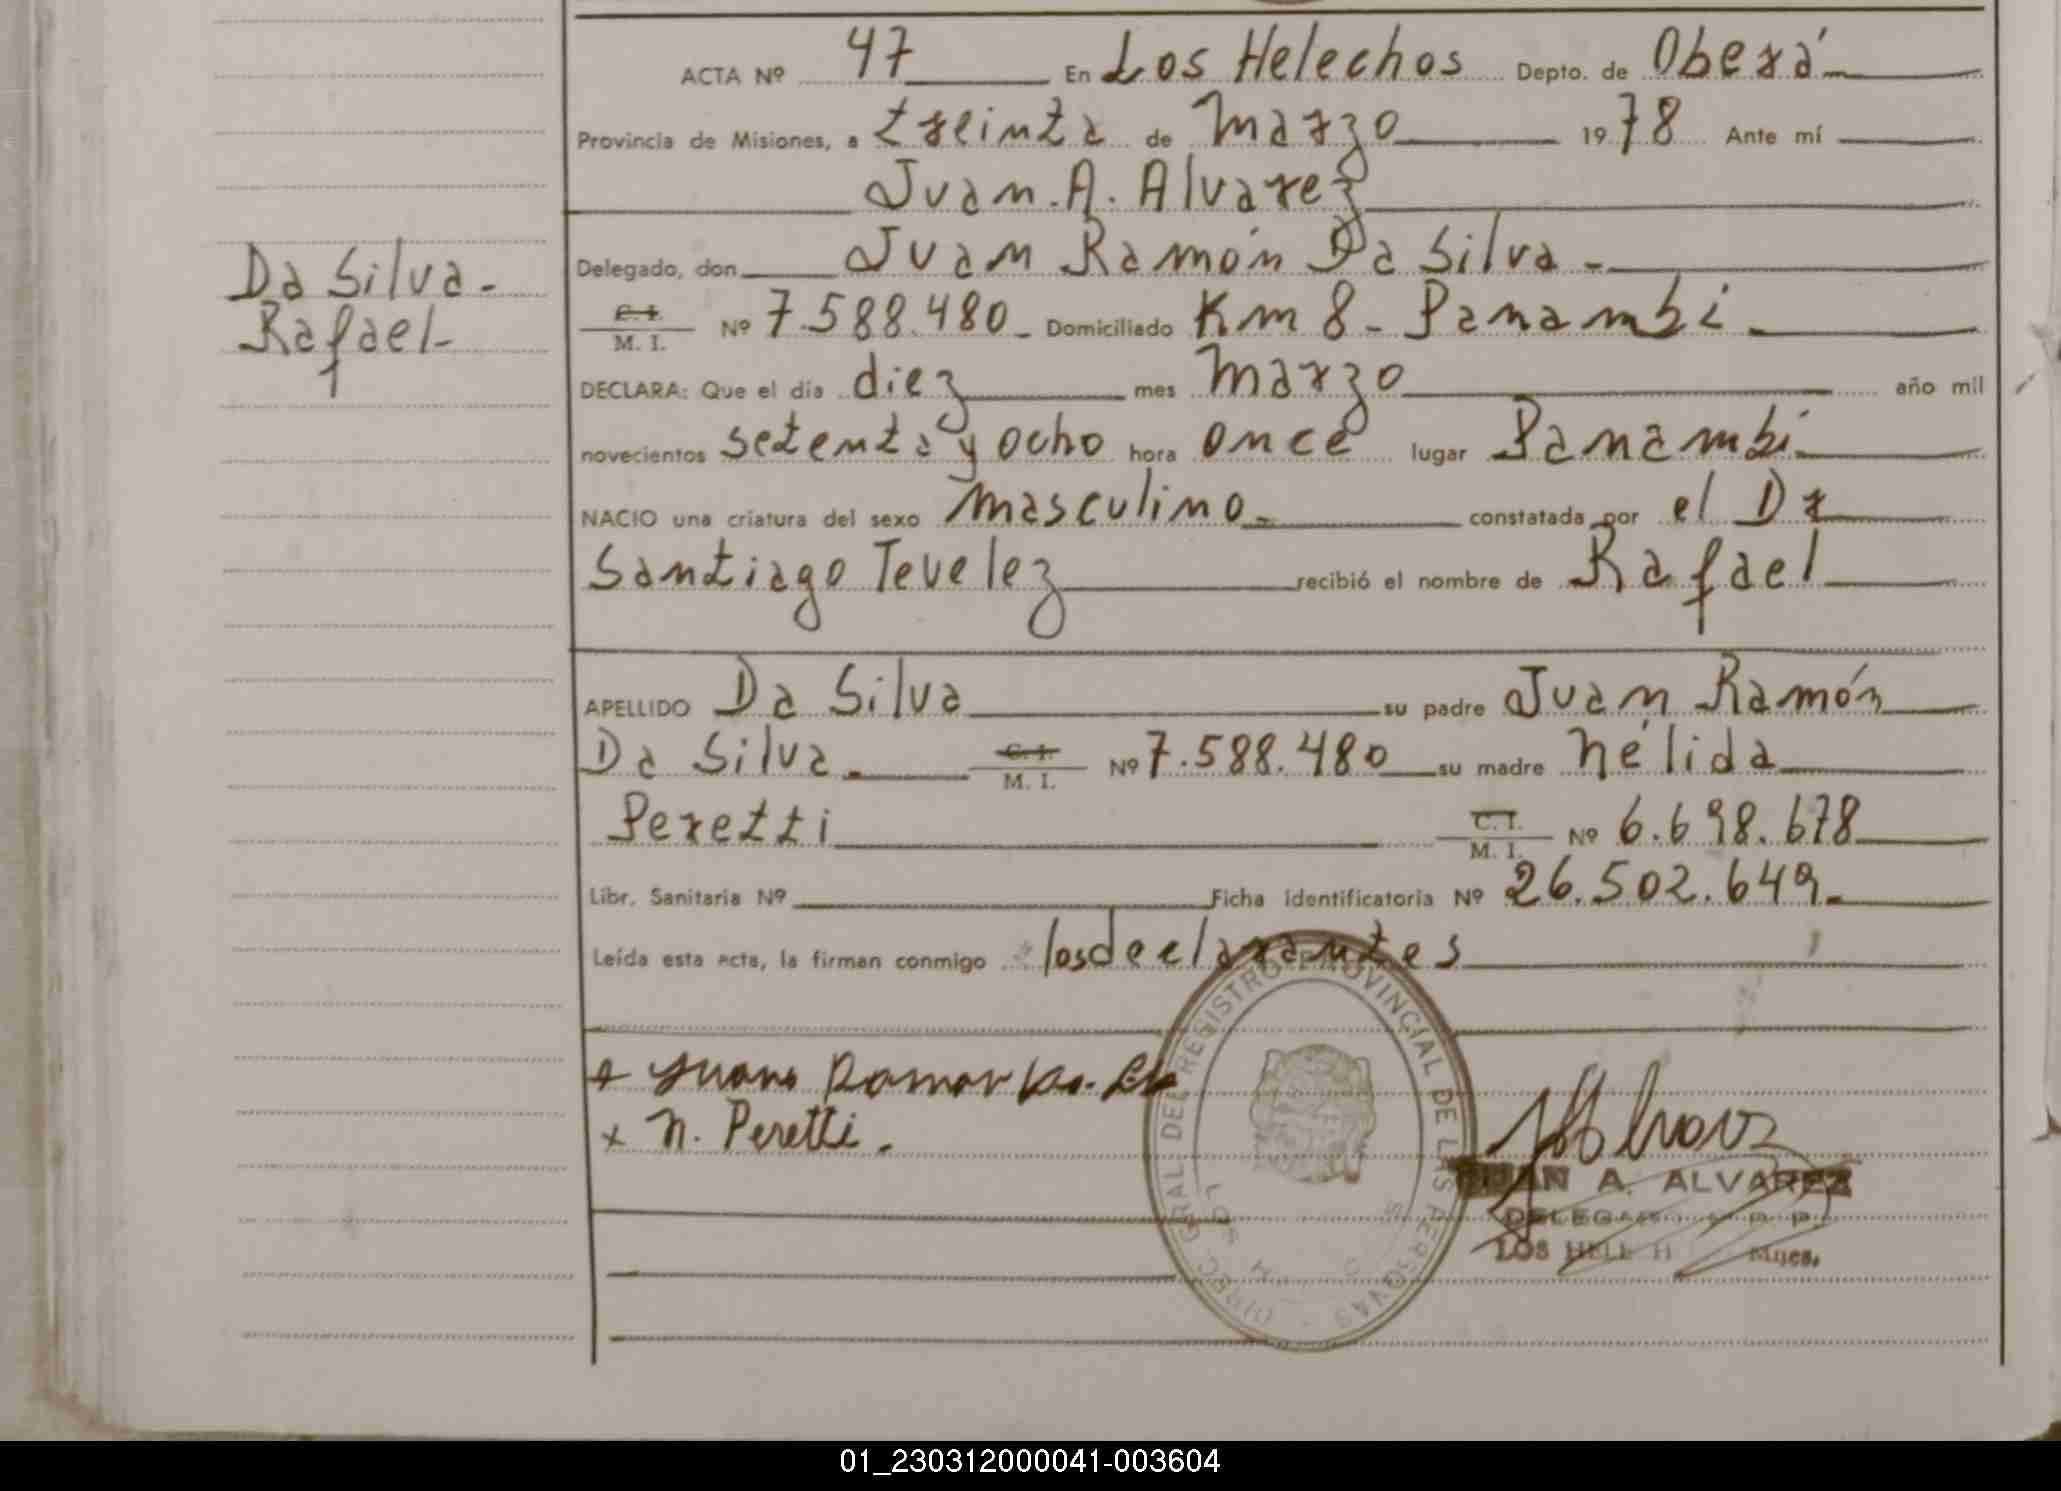 ACTA Nº 47 En Los Helechos Depto. de Oberá
Provincia de Misiones, a treinta de Marzo 1978 Ante mí
Juan. A. Alvarez
Delegado, don Juan Ramón Da Silva -
Da Silva -
Rafael-
C. I. M. I. Nº 7.588.480 - Domiciliado Km 8 - Panambí -
DECLARA: Que el día diez mes Marzo año mil
novecientos setenta y ocho hora once lugar Panambí
NACIO una criatura del sexo Masculino - constatada por el Dr
Santiago Tevelez recibió el nombre de Rafael
APELLIDO Da Silva su padre Juan Ramón
Da Silva - C. I. M. I. Nº 7.588.480 su madre Nélida
Peretti C. I. M. I. Nº 6.698.678
Libr. Sanitaria Nº Ficha identificatoria Nº 26.502.649 -
Leída esta acta, la firman conmigo los declarantes
DIREC. GRAL DEL REGISTRO PROVINCIAL DE LAS PERSONAS
+ Juan Ramon Da
x N. Peretti .
JUAN A. ALVAREZ
LOS Mnes.
01_230312000041-003604